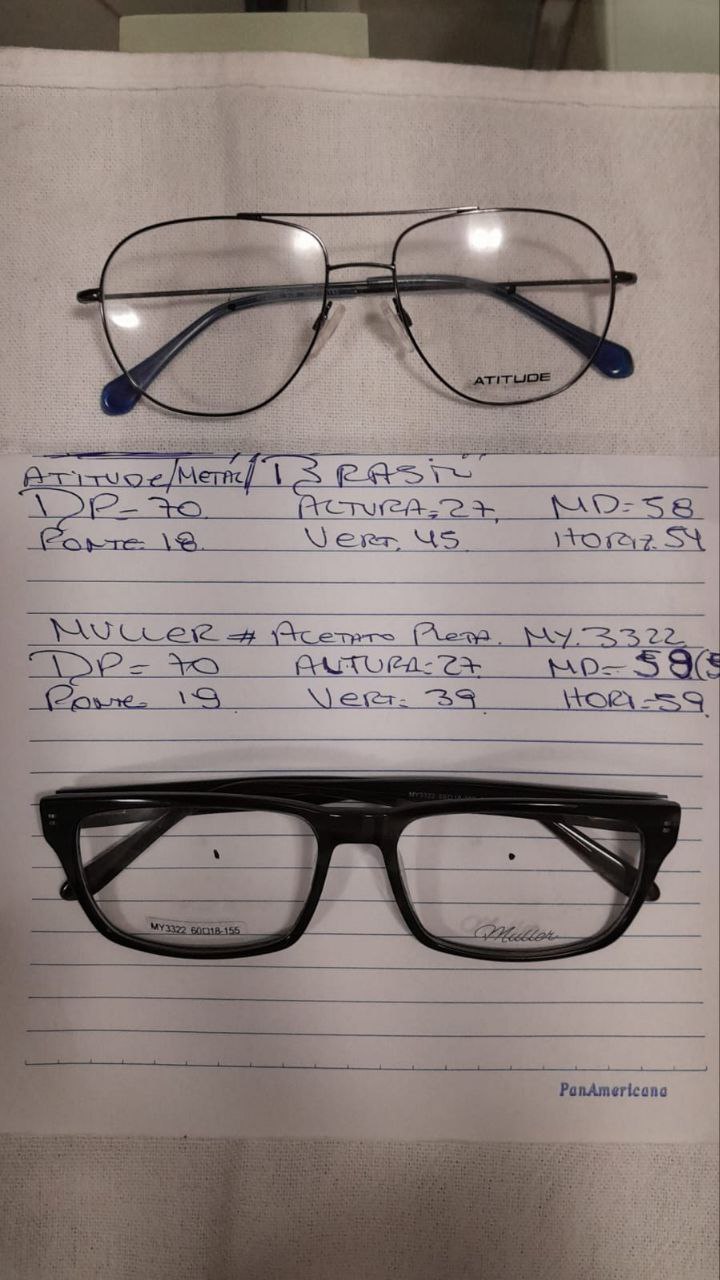 ATITUDE
ATITUDE/METAL/BRASIL
DP=70 ALTURA=27 MD=58
PONTE 18 VERT. 45 HORIZ. 54
MULLER # ACETATO PRETA. MY.3322
DP=70 ALTURA=27 MD=59(5
PONTE= 19 VERT= 39 HORI=59
MY3322
MY3322 60□18-155
Muller
PanAmericana